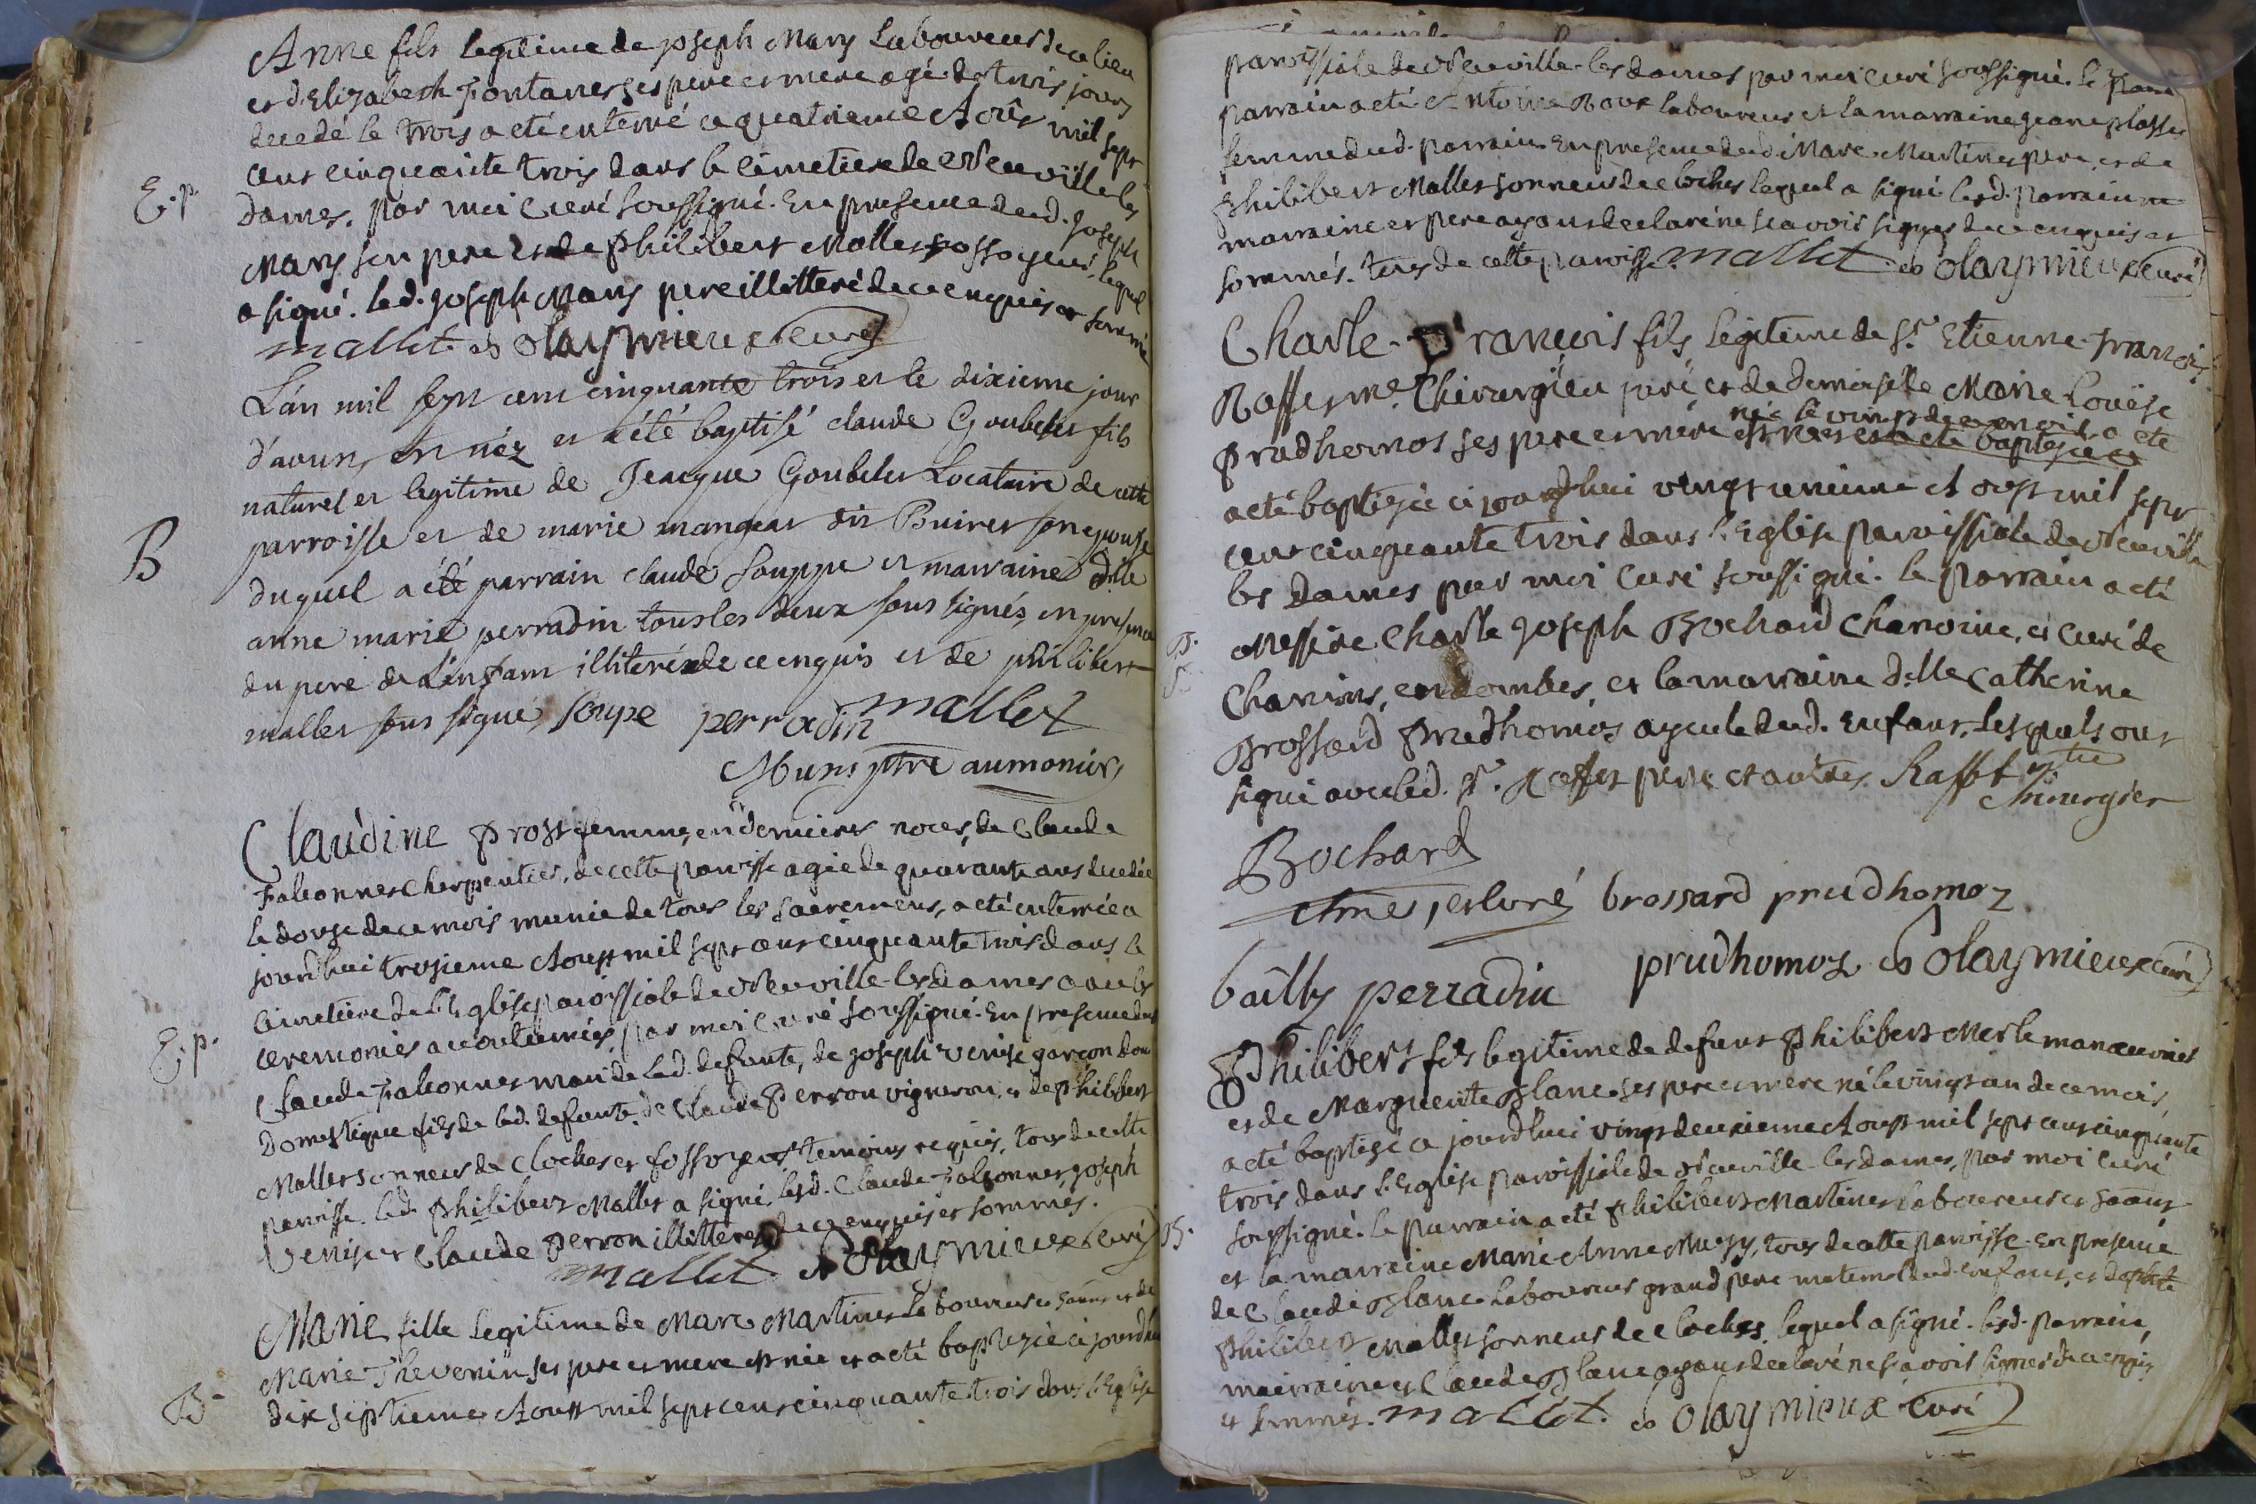 Anne fils legitime de joseph Mary Laboureur de ce lieu
et d'Elizabeth Fontanes ses pere et mere agé de trois jours
decedé le trois a eté enterré ce quatrieme Août mil sept
cent cinquante trois dans le cimetiere de Neuville les
E. p.
Dames. par moi Curé soussigné. En presence dud. Joseph
Mary son pere et de Philibert Mallet fossoyeur, lequel
a signé. led. joseph Mary pere illitteré de ce enquis et sommé
mallet Olaymieux curé
L'an mil sept cent cinquante trois et le dixieme jour
d'aoust, est néz et a été baptisé claude Goubelet fils
naturel et legitime de Jeacque Goubelet Locataire de cette
B
parroisse et de marie mangeat dit Buiret son epouse
duquel a été parrain claude Souppe et marraine Dlle
anne marie perradin tous les deux sous signés, en presence
du pere de L'enfant illiteré de ce enquis et de philibert
mallet sous signé, soupe perradin mallet
ptre aumonier
Claudine Prost femme, en dernieres noces, de Claude
Falconnet Charpentier, de cette paroisse agée de quarante ans decedée
le douze de ce mois munie de tous les sacremens, a eté enterrée a
jourdhui treisieme Aoust mil sept cent cinquante trois dans le
cimetiere de l'Eglise paroissiale de Neuville-les dames avec les
E. p.
ceremonies accoutumées par moi Curé soussigné. En presence de
Claude Falconnet mari de lad. defunte, de joseph Venise garçon dou
Domestique fils de lad. defunte. de Claude Perron vigneron, et de Philibert
Mallet sonneur de Cloches et fossoyeur, temoins requis, tous de cette
paroisse. led. Philibert Mallet a signé, lesd. Claude Falconnet, Joseph
Venise et Claude Perron illitterés de ce enquis et sommés.
mallet Olaymieux curé
Marie fille legitime de Marc Martinet Laboureur et de
Marie Thevenin ses pere et mere est née et a eté baptizée ce jourdhui
B
dix septieme Aoust mil sept cent cinquante trois dans l'Eglise
paroissiale de Neuville-les dames par moi curé soussigné. le
parrain a eté Antoine Roux laboureur et la marraine jeane
femme dud. parrain. En presence dud. Marc Martinet pere, et de
Philibert Mallet sonneur de cloches lequel a signé. lesd. parrain
marraine et pere ayant declaré ne sçavoir signer de ce enquis et
sommés. tous de cette paroisse. mallet Olaymieux curé
Charle-François fils legitime de Sr. Etienne-francois
Raffet me. Chirurgien juré, et de demoiselle Marie Louëse
née le vingt de ce mois, a eté
Prudhomos ses pere et mere est née et a eté baptisée ce
a eté baptizée ce jourdhui vingt unieme Aoust mil sept
cent cinquante trois dans l'Eglise paroissiale de Neuville
les Dames par moi Curé soussigné. le parrain a eté
B.
Messire Charle Joseph Bochard Chanoine, et Curé de
en dombes, et la marraine Delle Catherine
Brossard Prudhomos ayeule dud. Enfant, lesquels ont
signé avec led. Sr. Raffet pere et autres. Raffet
Chirurgien
Bochard
brossard prudhomoz
bailly perradin prudhomoz Olaymieux curé
Philibert fils legitime de defunt Philibert Merle manœuvrier
et de Marguerite Blanc ses pere et mere né le vingt un de ce mois,
a eté baptizé ce jourdhui vingt deuxieme Aoust mil sept cent cinquante
trois dans l'Eglise paroissiale de Neuville-les dames, par moi Curé
B.
soussigné. le parrain a eté Philibert Martinet Laboureur
et la marraine Marie Anne, tous de cette paroisse. En presence
de Claude Blanc Laboureur grand pere maternel dud. enfant, et de
Philibert Mallet sonneur de cloches, lequel a signé. lesd. parrain,
marraine et Claude Blanc ayant declaré ne sçavoir signer de ce enquis
et sommés. mallet. Olaymieux curé